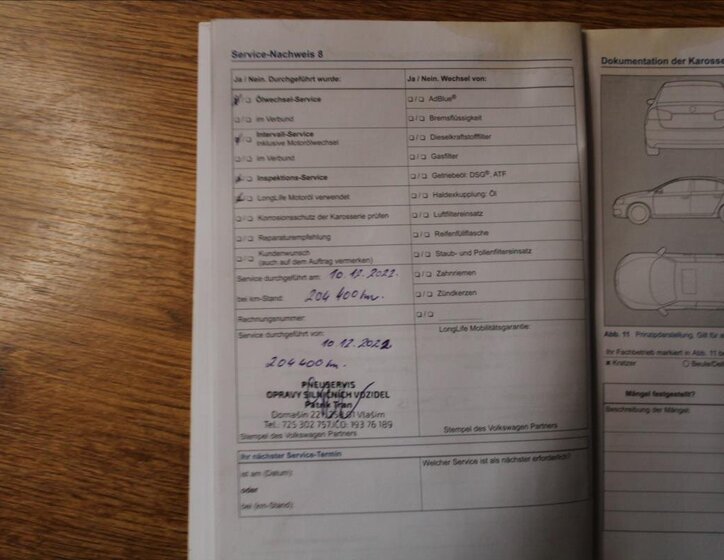 Service-Nachweis 8
Ja / Nein. Durchgeführt wurde:
Ölwechsel-Service
im Verbund
Intervall-Service
Inklusive Motorölwechsel
im Verbund
Inspektions-Service
LongLife Motoröl verwendet
Korrosionsschutz der Karosserie prüfen
Reparaturempfehlung
Kundenwunsch
(auch auf dem Auftrag vermerken)
Service durchgeführt am: 10.12.2022.
bei km-Stand: 204 400 km.
Rechnungsnummer:
Service durchgeführt von:
10.12.2022
204 400 km.
PNEUSERVIS
OPRAVY SILNIČNÍCH VOZIDEL
Patrik Tran
Domašín 221, 258 01 Vlašim
Tel.: 725 302 757, IČO: 193 76 189
Stempel des Volkswagen Partners
Ja / Nein. Wechsel von:
AdBlue®
Bremsflüssigkeit
Dieselkraftstofffilter
Gasfilter
Getriebeöl: DSG®; ATF
Haldexkupplung: Öl
Luftfiltereinsatz
Reifenfüllflasche
Staub- und Pollenfiltereinsatz
Zahnriemen
Zündkerzen
LongLife Mobilitätsgarantie:
Stempel des Volkswagen Partners
Ihr nächster Service-Termin
ist am (Datum):
oder
bei (km-Stand):
Welcher Service ist als nächster erforderlich?
Dokumentation der Karosse
Abb. 11 Prinzipdarstellung. Gilt für
Ihr Fachbetrieb markiert in Abb. 11
Kratzer
Beule/Del
Mängel festgestellt?
Beschreibung der Mängel: